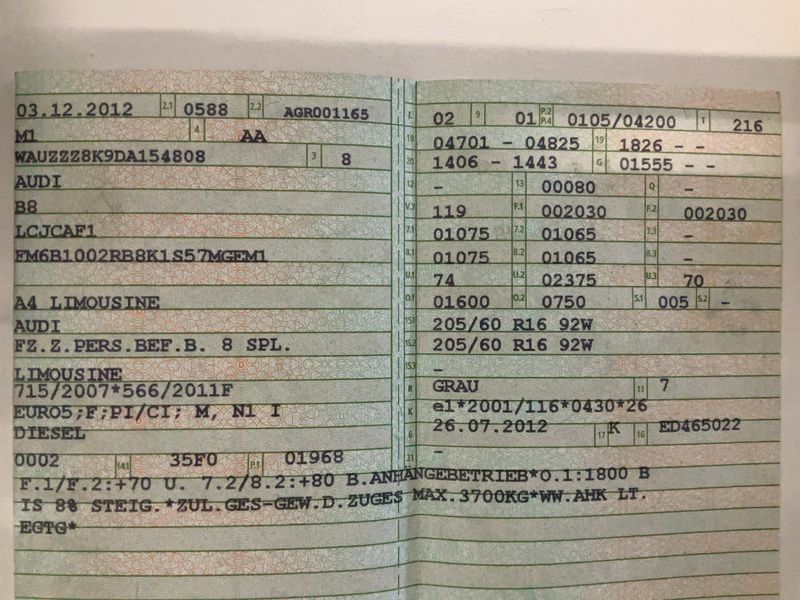 03.12.2012 2.1 0588 2.2 AGR001165
M1 4 AA
WAUZZZ8K9DA154808 3 8
AUDI
B8
LCJCAF1
FM6B1002RB8K1S57MGEM1
A4 LIMOUSINE
AUDI
FZ.Z.PERS.BEF.B. 8 SPL.
LIMOUSINE
715/2007*566/2011F
EURO5;F;PI/CI; M, N1 I
DIESEL
0002 14.1 35F0 P.1 01968
L 02 9 01 P.2 P.4 0105/04200 T 216
18 04701 - 04825 19 1826 - -
20 1406 - 1443 G 01555 - -
12 - 13 00080 Q -
V.7 119 F.1 002030 F.2 002030
7.1 01075 7.2 01065 7.3 -
8.1 01075 8.2 01065 8.3 -
U.1 74 U.2 02375 U.3 70
O.1 01600 O.2 0750 S.1 005 S.2 -
15.1 205/60 R16 92W
15.2 205/60 R16 92W
15.3 -
R GRAU 11 7
K e1*2001/116*0430*26
6 26.07.2012 17 K 16 ED465022
21 -
F.1/F.2:+70 U. 7.2/8.2:+80 B.ANHÄNGEBETRIEB*O.1:1800 B
IS 8% STEIG.*ZUL.GES-GEW.D.ZUGES MAX.3700KG*WW.AHK LT.
EGTG*